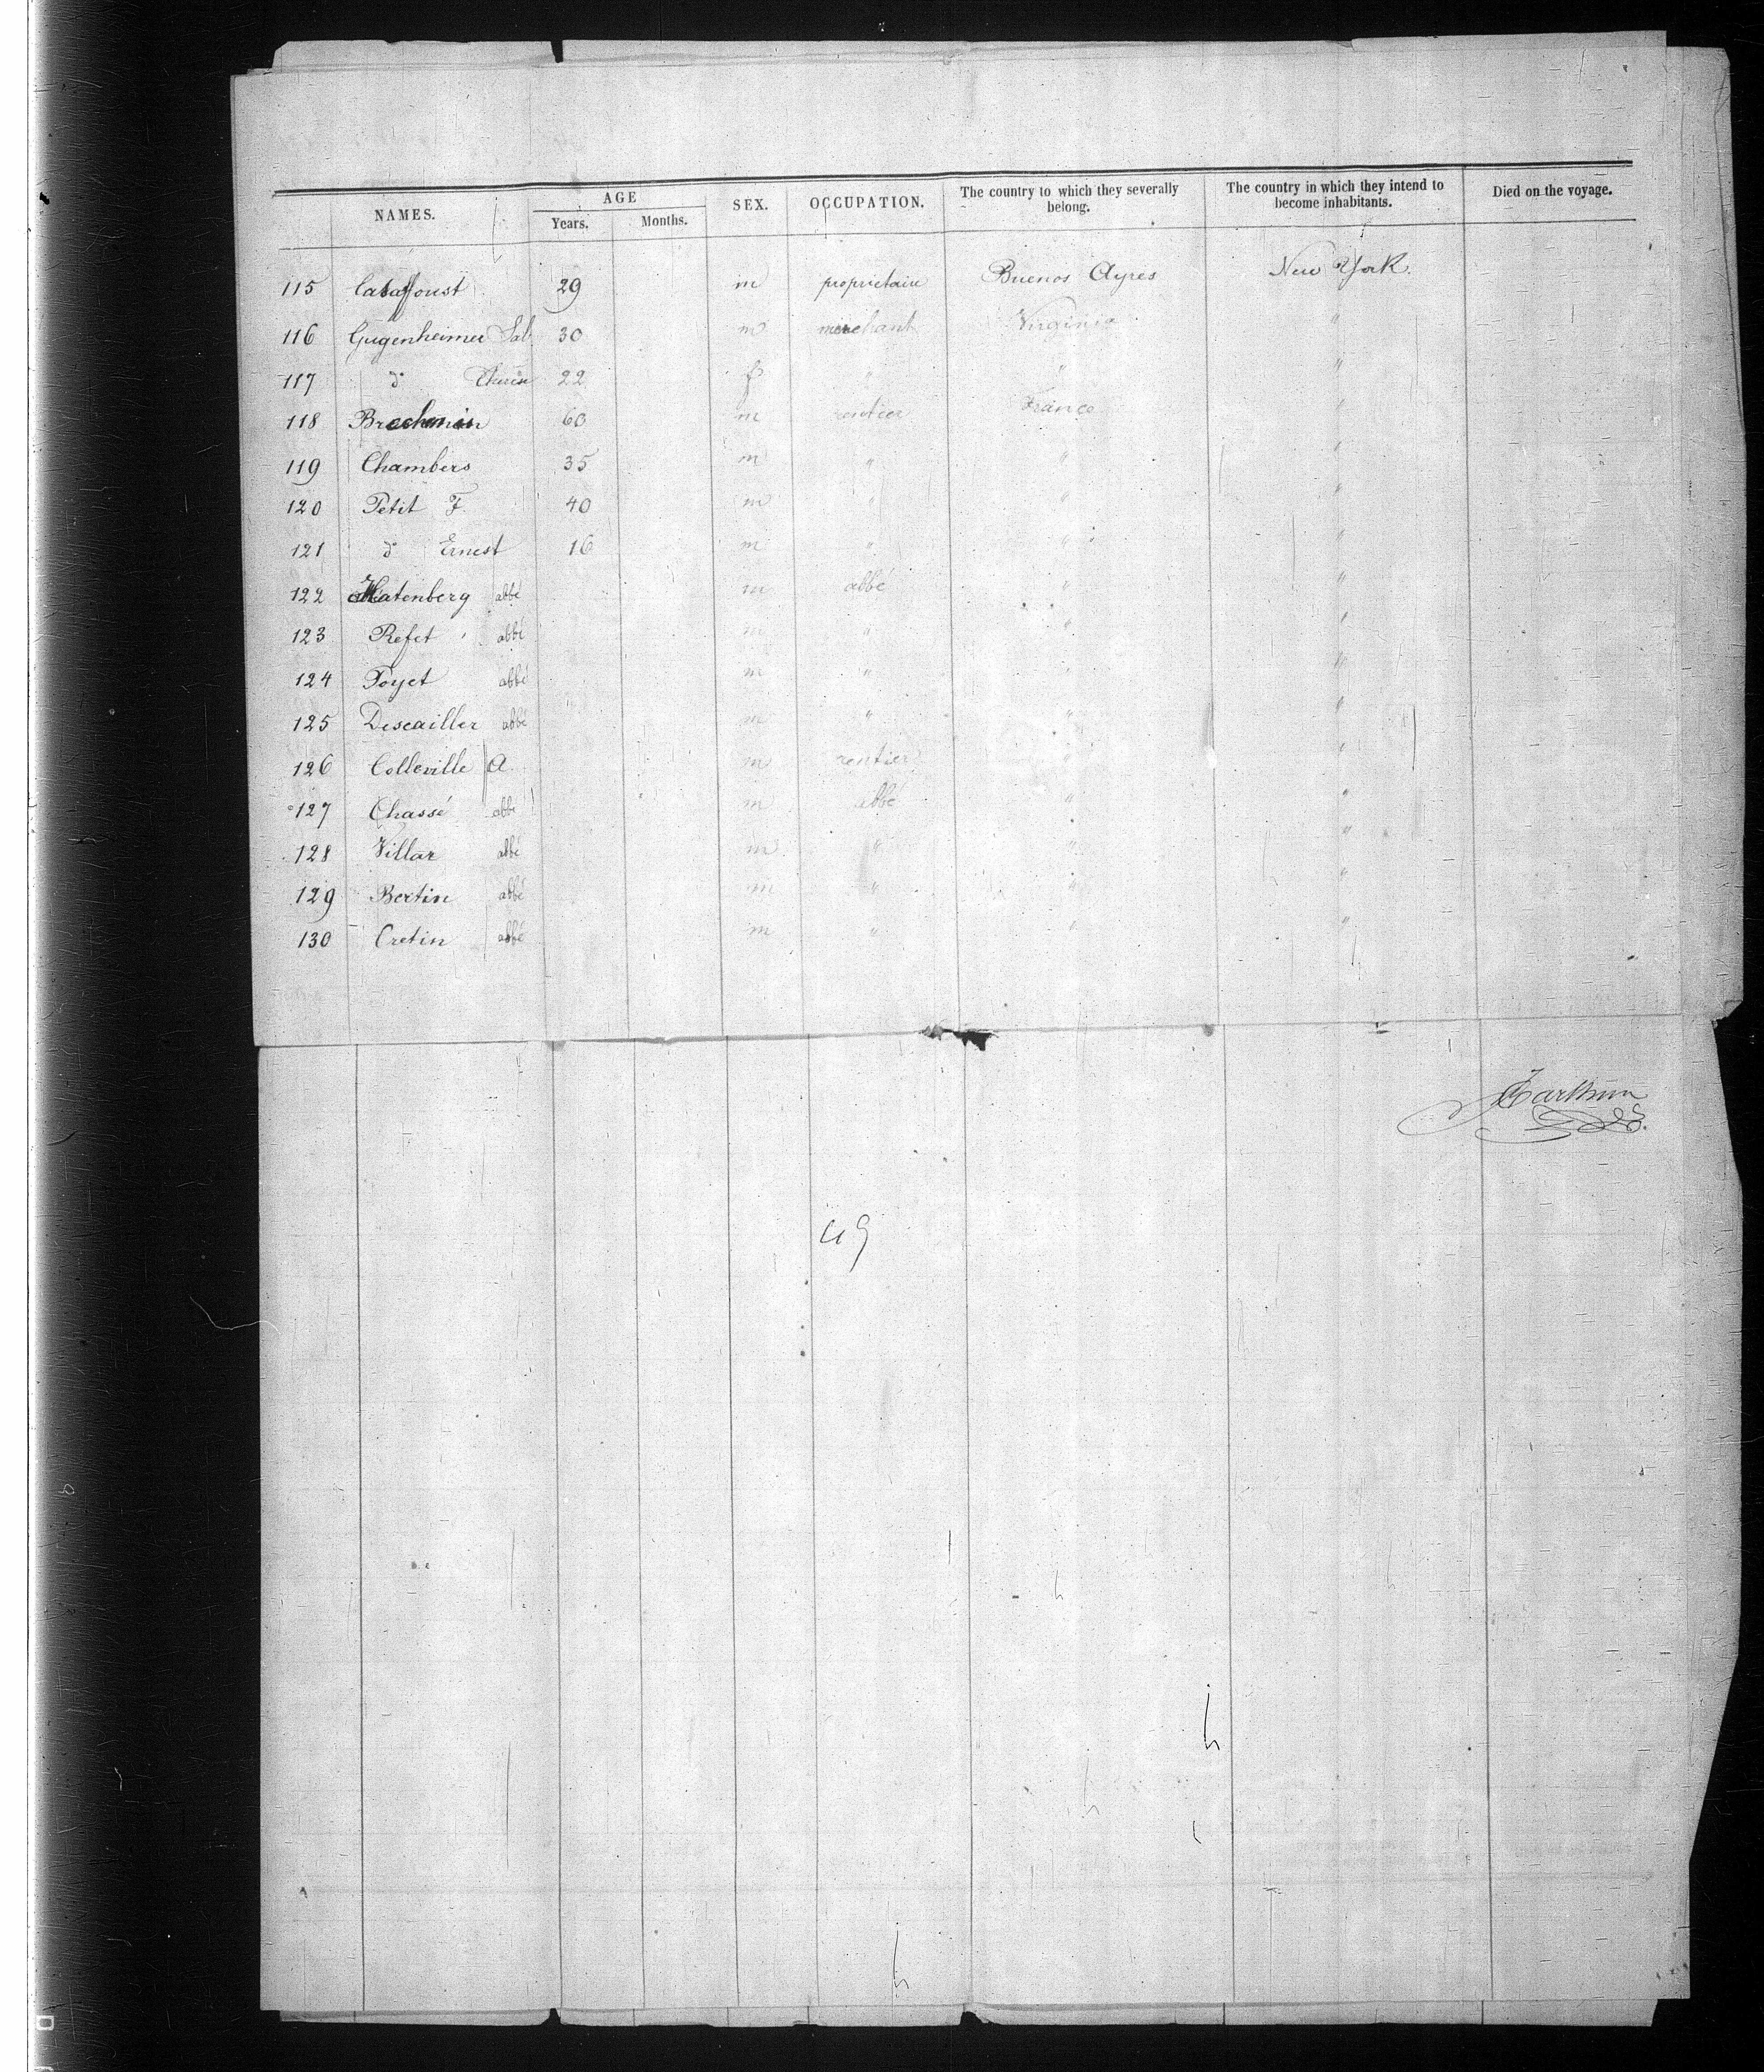 NAMES. AGE Years. Months. SEX. OCCUPATION. The country to which they severally belong. The country in which they intend to become inhabitants. Died on the voyage.
115 29 m proprietaire Buenos Ayres New York.
116 Gugenheimer Sal 30 m merchant Virginia "
117 do 22 f " " "
118 60 m rentier France "
119 Chambers 35 m " " "
120 Petit F. 40 m " " "
121 do Ernest 16 m " " "
122 abbé m abbé " "
123 Refet abbé m " " "
124 Poyet abbé m " " "
125 Descailler abbé m " " "
126 Colleville A. m rentier " "
127 Chassé abbé m abbé " "
128 Villar abbé m " " "
129 Bertin abbé m " " "
130 Cretin abbé m " " "